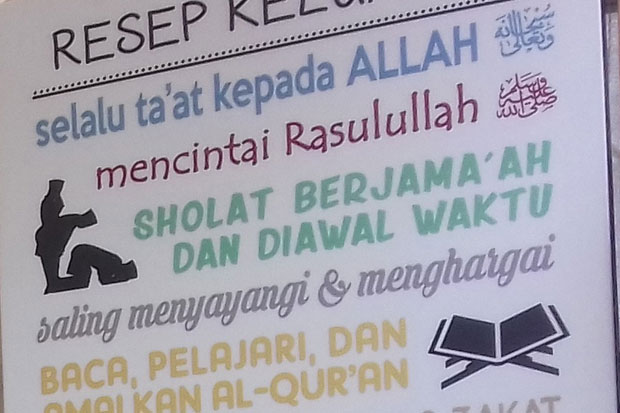 RESEP
selalu ta'at kepada ALLAH سبحانه وتعالى
mencintai Rasulullah صلى الله عليه وسلم
SHOLAT BERJAMA'AH
DAN DIAWAL WAKTU
saling menyayangi & menghargai
BACA, PELAJARI, DAN
AMALKAN AL-QUR'AN
ZAKAT